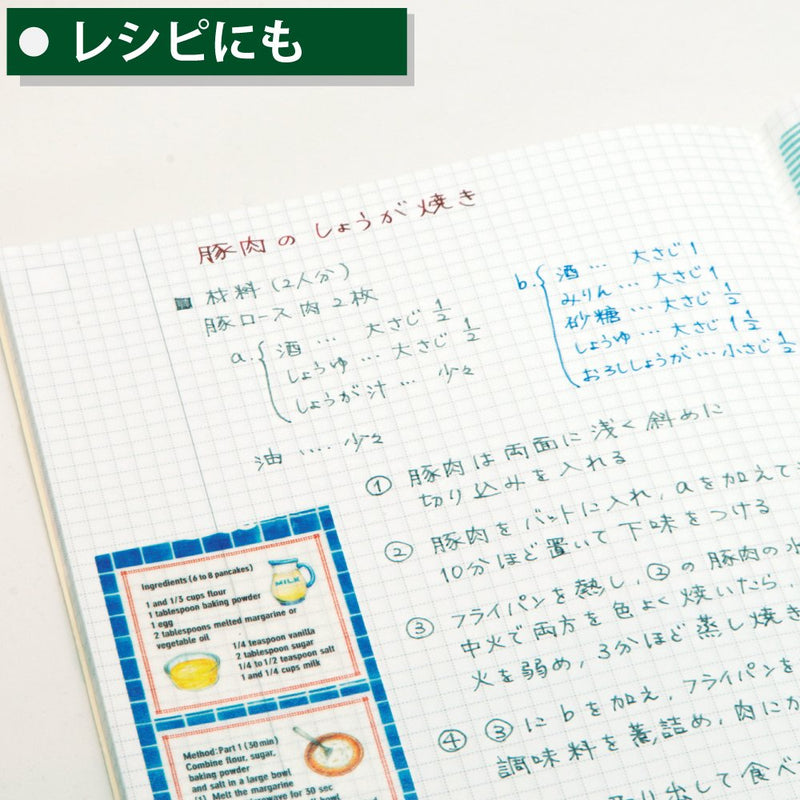 レシピにも
豚肉のしょうが焼き
■ 材料 (2人分)
豚ロース肉 2枚
a. 酒 … 大さじ 1/2
しょうゆ … 大さじ 1/2
しょうが汁 … 少々
油 … 少々
b. 酒 … 大さじ 1
みりん … 大さじ 1
砂糖 … 大さじ 1/2
しょうゆ … 大さじ 1 1/2
おろししょうが … 小さじ 1/2
① 豚肉は両面に浅く斜めに
切り込みを入れる
② 豚肉をバットに入れ, aを加えて
10分ほど置いて下味をつける
③ フライパンを熱し, ②の豚肉の
中火で両方を色よく焼いたら,
火を弱め, 3分ほど蒸し焼き
④ ③にbを加え, フライパンを
調味料を煮詰め, 肉にか
取り出して食べ
Ingredients (6 to 8 pancakes)
1 and 1/3 cups flour
1 tablespoon baking powder
1 egg
2 tablespoons melted margarine or
vegetable oil
1/4 teaspoon vanilla
2 tablespoon sugar
1/4 to 1/2 teaspoon salt
1 and 1/4 cups milk
MILK
Method: Part 1 (30 min)
Combine flour, sugar,
baking powder
and salt in a large bowl
(1) Melt the margarine